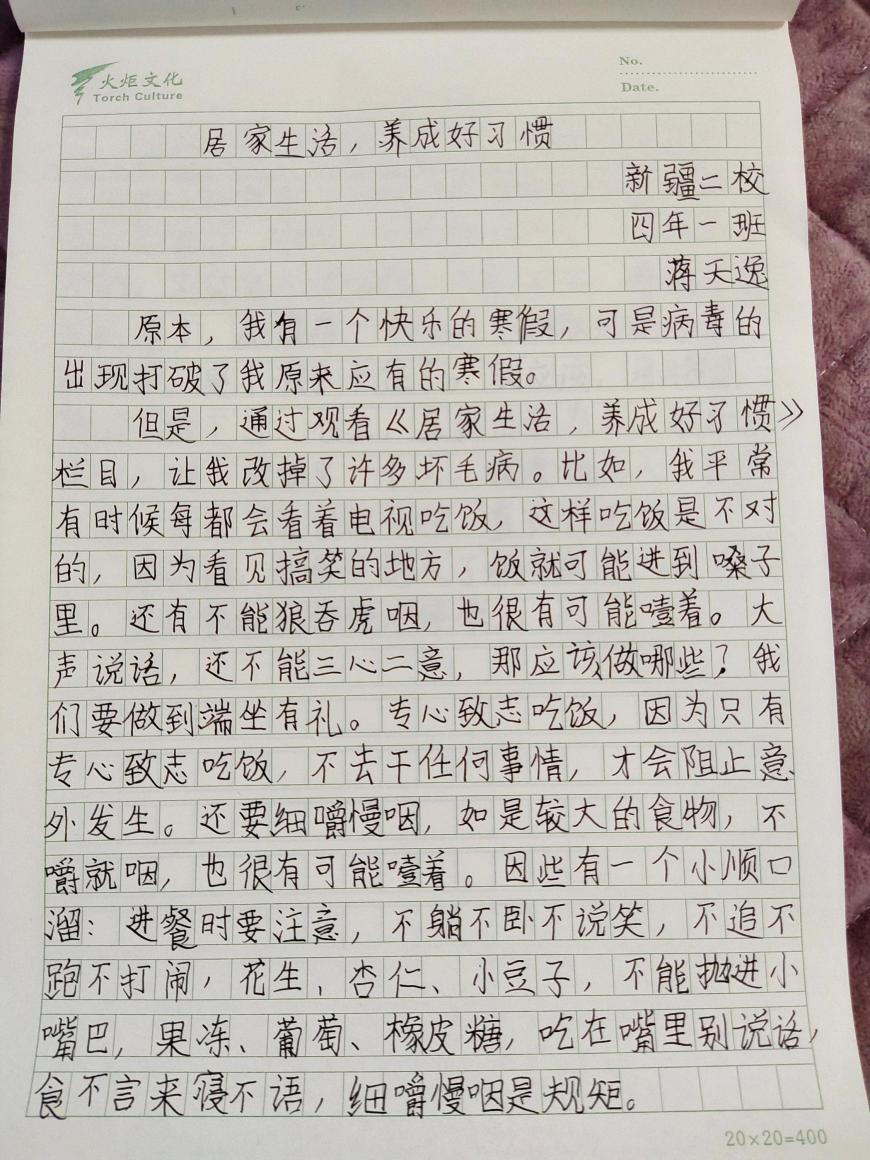 火炬文化
Torch Culture
No.
Date.
居家生活，养成好习惯
新疆二校
四年一班
蒋天逸
原本，我有一个快乐的寒假，可是病毒的
出现打破了我原来应有的寒假。
但是，通过观看《居家生活，养成好习惯》
栏目，让我改掉了许多坏毛病。比如，我平常
有时候每都会看着电视吃饭，这样吃饭是不对
的，因为看见搞笑的地方，饭就可能进到嗓子
里。还有不能狼吞虎咽，也很有可能噎着。大
声说话，还不能三心二意，那应该做哪些？我
们要做到端坐有礼。专心致志吃饭，因为只有
专心致志吃饭，不去干任何事情，才会阻止意
外发生。还要细嚼慢咽，如是较大的食物，不
嚼就咽，也很有可能噎着。因些有一个小顺口
溜：进餐时要注意，不躺不卧不说笑，不追不
跑不打闹，花生、杏仁、小豆子，不能抛进小
嘴巴，果冻、葡萄、橡皮糖，吃在嘴里别说话，
食不言来寝不语，细嚼慢咽是规矩。
20×20=400